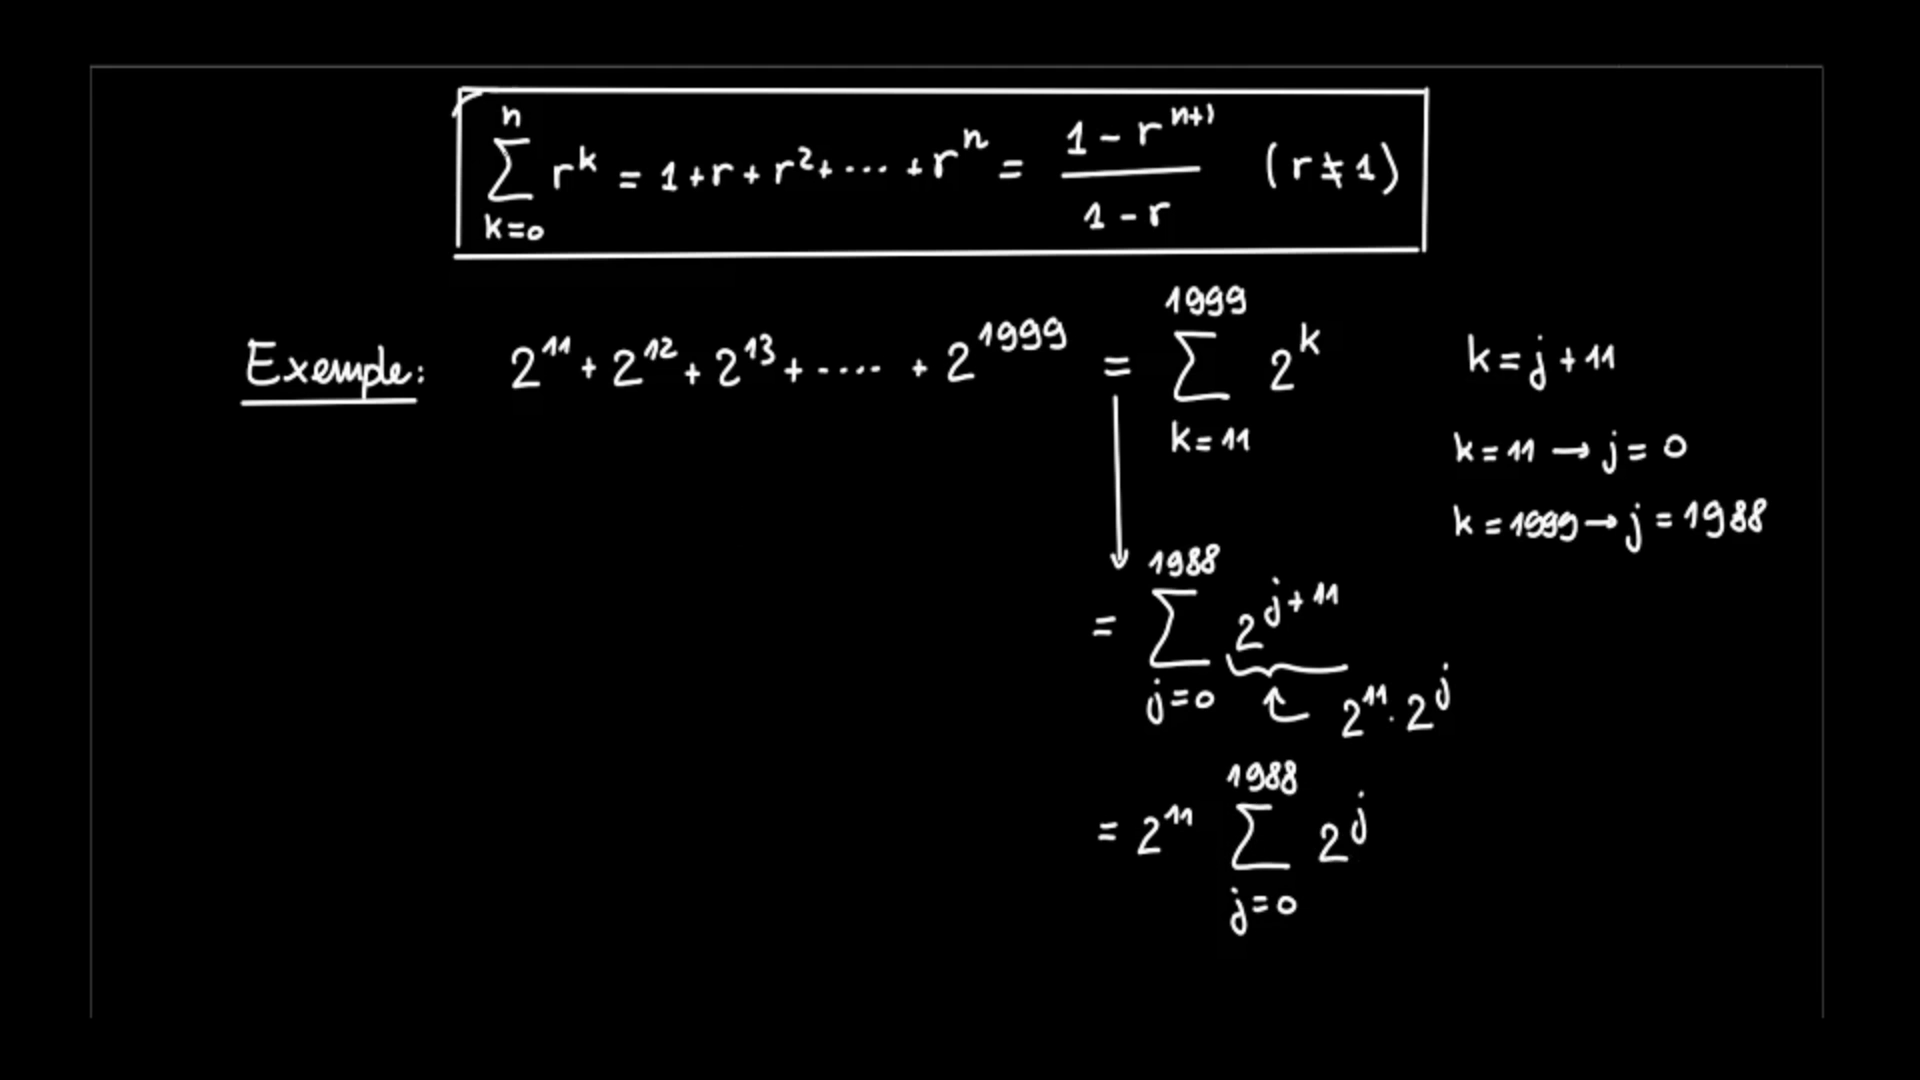 \sum_{k=0}^{n} r^k = 1 + r + r^2 + \cdots + r^n = \frac{1 - r^{n+1}}{1 - r} (r ≠ 1)
Exemple: 2^{11} + 2^{12} + 2^{13} + \cdots + 2^{1999} = \sum_{k=11}^{1999} 2^k
k = j + 11
k = 11 → j = 0
k = 1999 → j = 1988
= \sum_{j=0}^{1988} 2^{j+11}
2^{11} \cdot 2^j
= 2^{11} \sum_{j=0}^{1988} 2^j